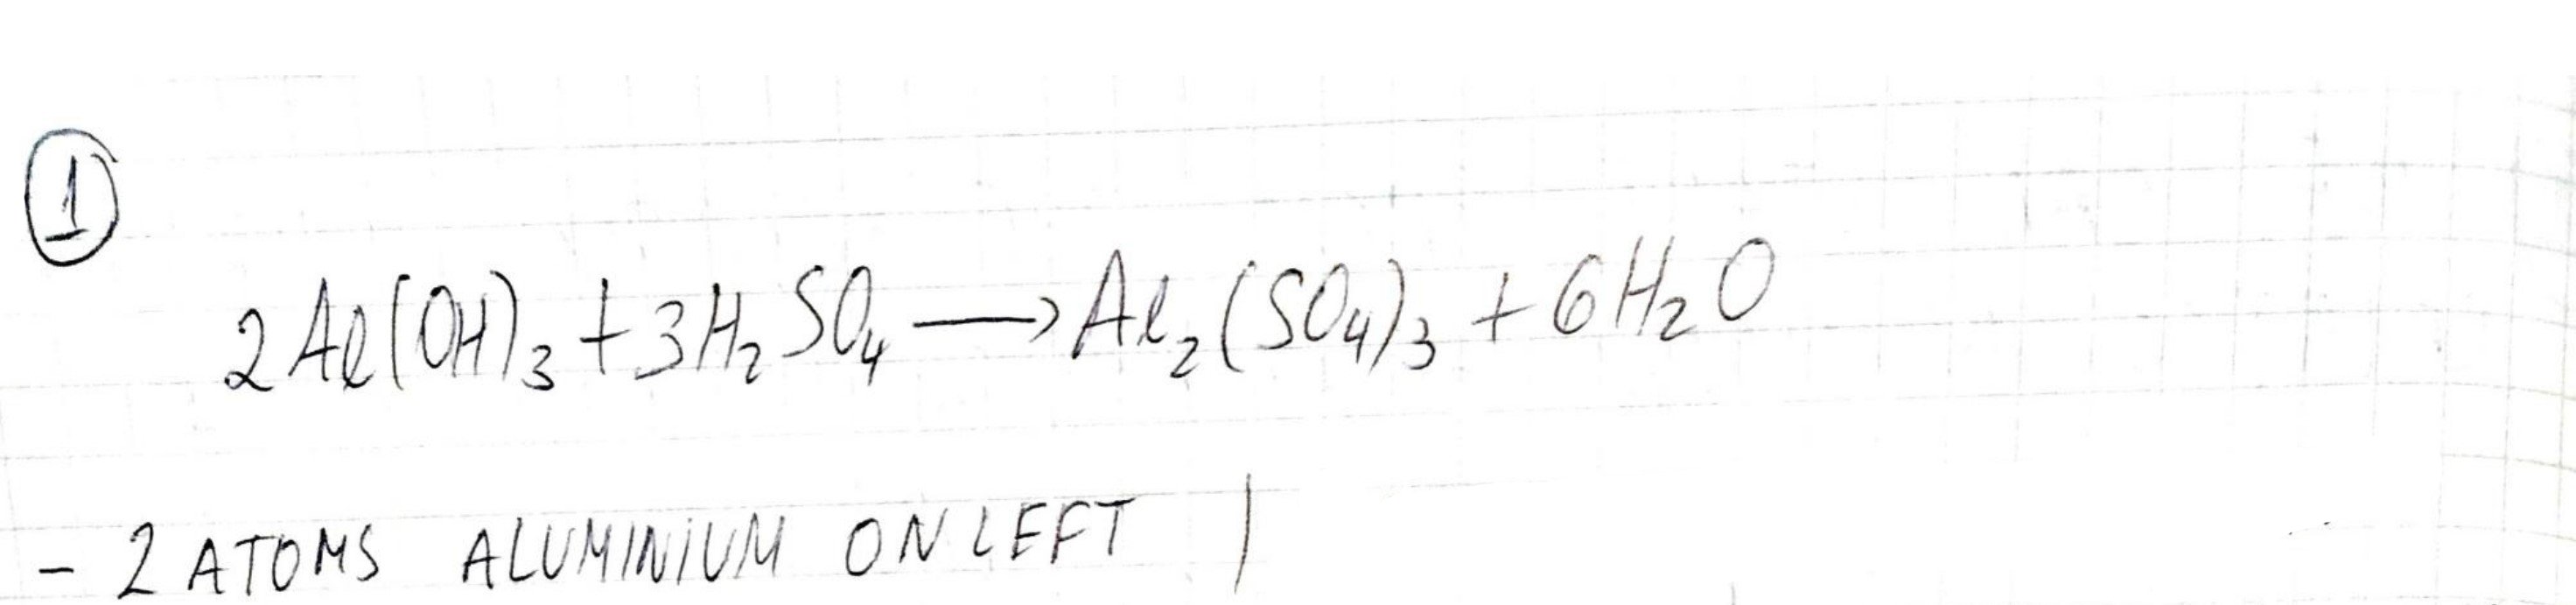 1
2Al(OH)₃ + 3H₂SO₄ ⟶ Al₂(SO₄)₃ + 6H₂O
- 2 ATOMS ALUMINIUM ON LEFT |